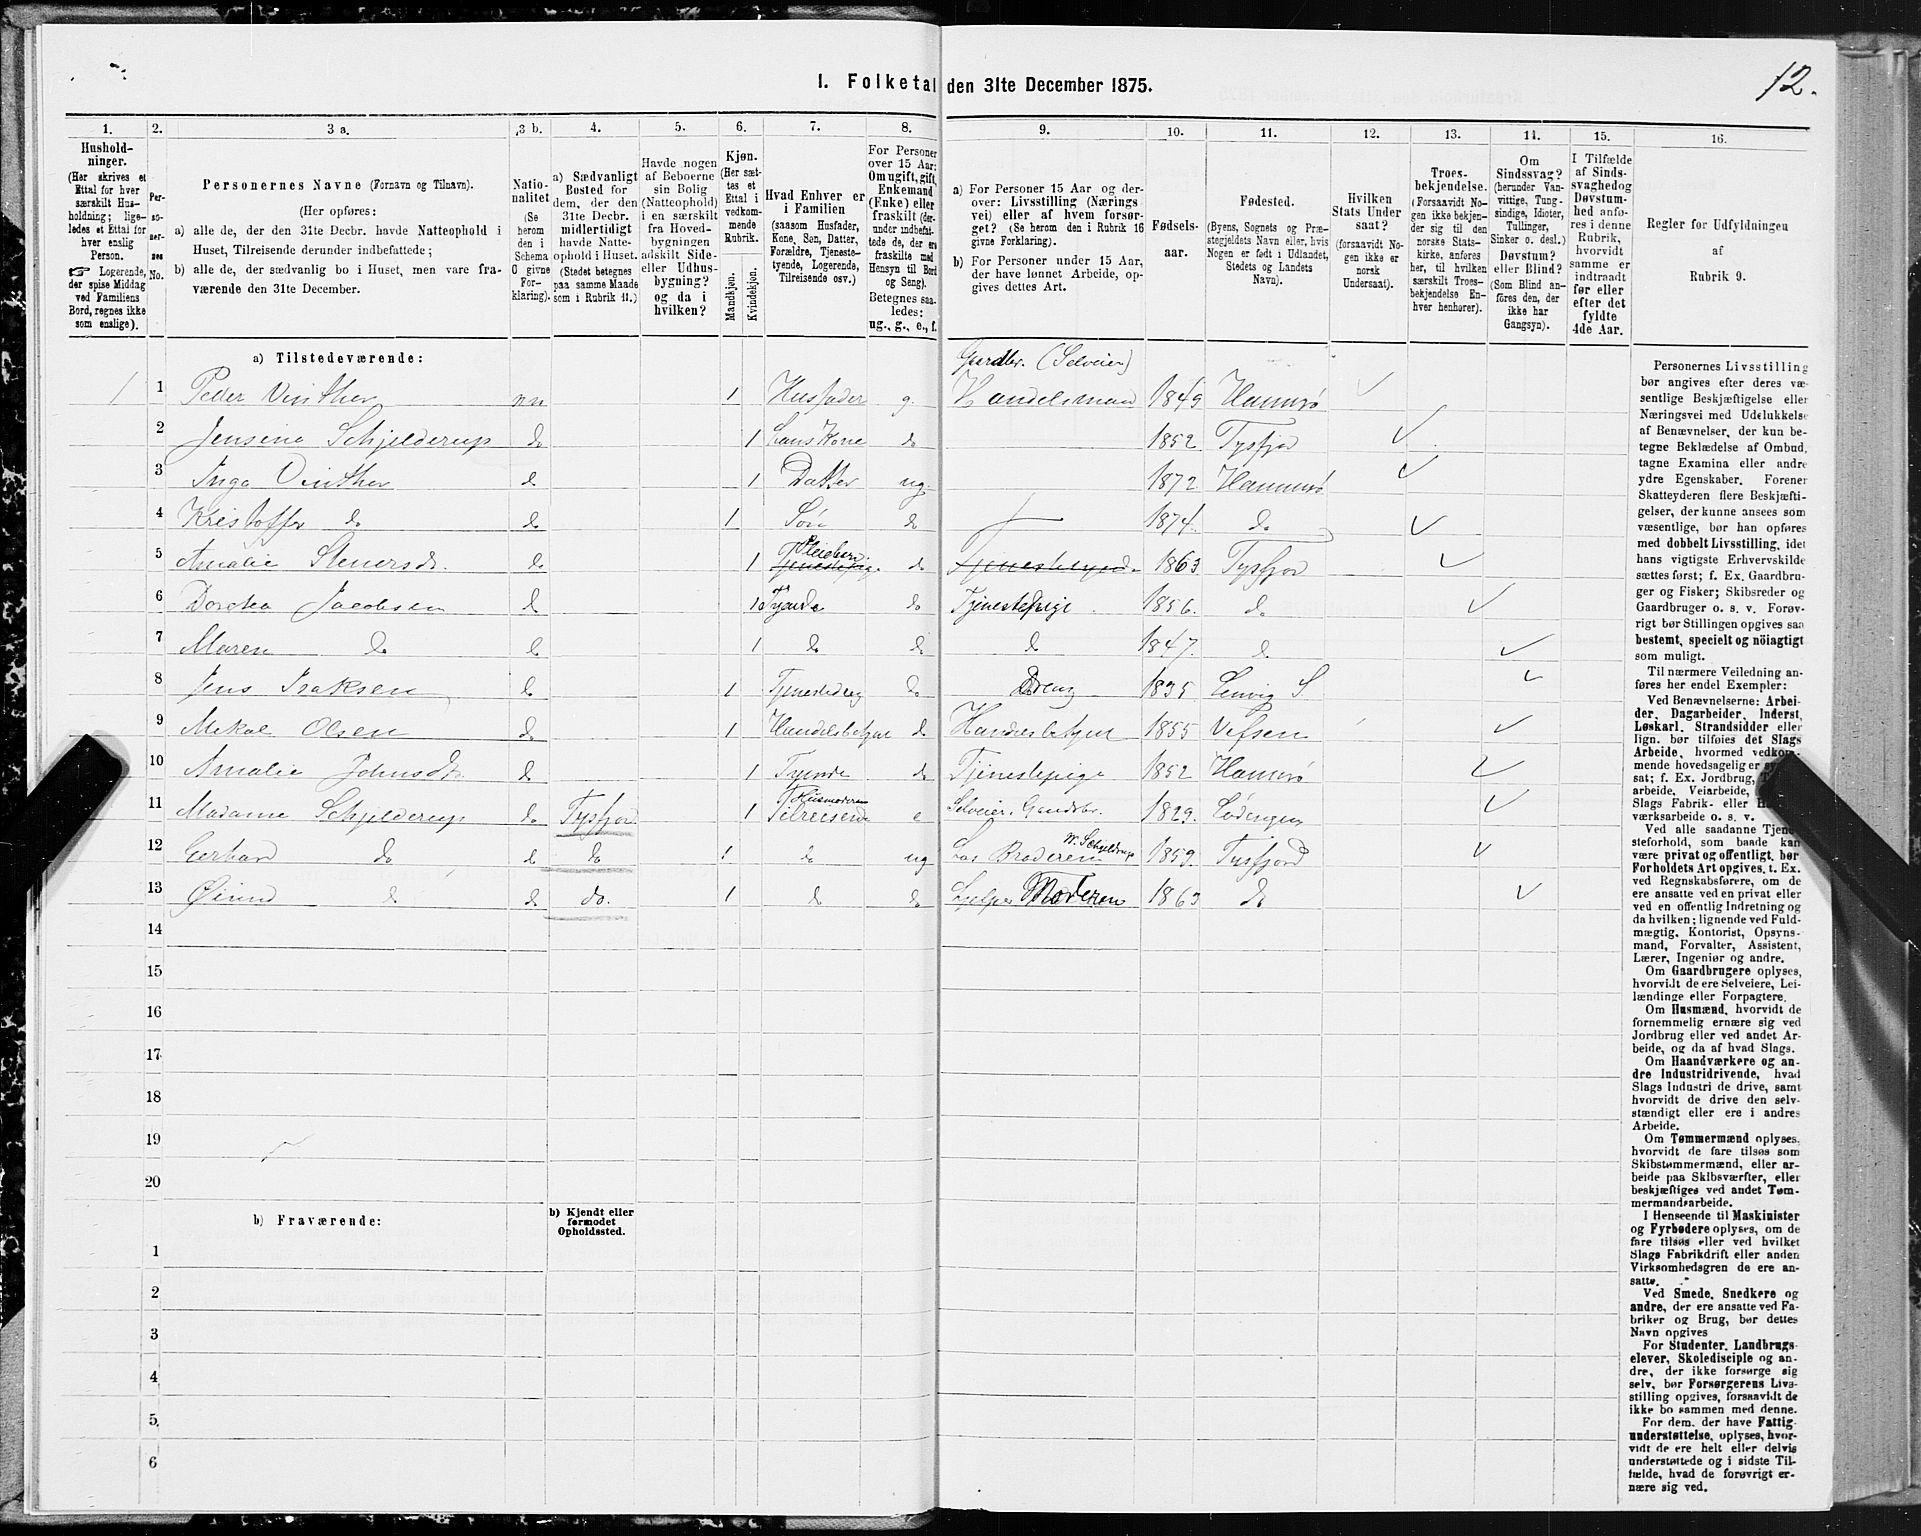 12.
I. Folketal den 31te December 1875.
1. 2. 3 a. 3 b. 4. 5. 6. 7. 8. 9. 10. 11. 12. 13. 14. 15. 16.
Hushold-
ninger.
(Her skrives et
Ettal for hver
særskilt Hus-
holdning; lige-
ledes et Ettal for
hver enslig
Person.
☞ Logerende,
der spise Middag
ved Familiens
Bord, regnes ikke
som enslige).
Per-
so-
ner-
nes
No.
Personernes Navne (Fornavn og Tilnavn).
(Her opføres:
a) alle de, der den 31te Decbr. havde Natteophold i
Huset, Tilreisende derunder indbefattede;
b) alle de, der sædvanlig bo i Huset, men vare fra-
værende den 31te December.
Natio-
nalitet
(Se
herom
den i
Schema
O givne
For-
klaring).
a) Sædvanligt
Bosted for
dem, der den
31te Decbr.
midlertidigt
havde Natte-
ophold i Huset.
(Stedet betegnes
paa samme Maade
som i Rubrik 11.)
Havde nogen
af Beboerne
sin Bolig
(Natteophold)
i en særskilt
fra Hoved-
bygningen
adskilt Side-
eller Udhus-
bygning?
og da i
hvilken?
Kjøn.
(Her sæt-
tes et
Ettal i
vedkom-
mende
Rubrik.
Mandkjøn.
Kvindekjøn.
Hvad Enhver er
i Familien
(saasom Husfader,
Kone, Søn, Datter,
Forældre, Tjeneste-
tyende, Logerende,
Tilreisende osv.)
For Personer
over 15 Aar:
Om ugift, gift,
Enkemand
(Enke) eller
fraskilt (der-
under indbefat-
tede de, der ere
fraskilte med
Hensyn til Bord
og Seng).
Betegnes saa-
ledes:
ug., g., e., f.
a) For Personer 15 Aar og der-
over: Livsstilling (Nærings-
vei) eller af hvem forsør-
get? (Se herom den i Rubrik 16
givne Forklaring).
b) For Personer under 15 Aar,
der have lønnet Arbeide, op-
gives dettes Art.
Fødsels-
aar.
Fødested.
(Byens, Sognets og Præ-
stegjeldets Navn eller, hvis
Nogen er født i Udlandet,
Stedets og Landets
Navn).
Hvilken
Stats Under
saat?
(forsaavidt No-
gen ikke er
norsk
Undersaat).
Troes-
bekjendelse.
(Forsaavidt No-
gen ikke bekjen-
der sig til den
norske Stats-
kirke, anføres
her, til hvilken
særskilt Troes-
bekjendelse En-
hver henhører).
Om
Sindssvag?
(herunder Van-
vittige, Tung-
sindige, Idioter,
Tullinger,
Sinker o. desl.)
Døvstum?
eller Blind?
(Som Blind an-
føres den, der
ikke har
Gangsyn).
I Tilfælde
af Sinds-
svaghed og
Døvstum-
hed anfø-
res i denne
Rubrik,
hvorvidt
samme er
indtraadt
før eller
efter det
fyldte
4de Aar.
Regler for Udfyldningen
af
Rubrik 9.
a) Tilstedeværende:
Gardbr. (Selveier)
1 1 Peder Vinther nn 1 Husfader g. Handelsmand 1849 Hamerø
2 Jensine Schjelderup do 1 hans Kone do 1852 Tysfjor
3 Inga Vinther d 1 Datter ug. 1872 Hamerø
4 Kristoffer do d 1 Søn do 1874. do
5 Amalie Stenersdr. d 1 Pleiebarn Tjenestepige do 1863 Tysfjor
6 Dorthea Jacobsen d 1 Tyende do Tjenestepige. 1856. do
7 Maren do d 1 do d d 1847. d
8 Jens Isaksen d 1 Tjenestedreng do Dreng 1835 Lenvig S
9 Mekal Olsen d 1 Handelsbetjent d Handelsbetjent 1855 Vefsen
10 Amalie Johnsdtr. d 1 Tyende do Tjenestepige 1852 Hamerø
11 Madame Schjelderup do Tysfjor 1 Husmoderen Tilreisende e Selveier. Gaardsbr. 1829. Lødingen
12 Gerhard do d do 1 do ug Hos Broderen W. Schjeldrup 1859. Tysfjord
13 Øivind do do do. 1 d do hjelper Moderen 1863 do
14
15
16
17
18
19
20
b) Fraværende:
b) Kjendt eller
formodet
Opholdssted.
1
2
3
4
5
6
Personernes Livsstilling
bør angives efter deres væ-
sentlige Beskjæftigelse eller
Næringsvei med Udelukkelse
af Benævnelser, der kun be-
tegne Beklædelse af Ombud,
tagne Examina eller andre
ydre Egenskaber. Forener
Skatteyderen flere Beskjæfti-
gelser, der kunne ansees som
væsentlige, bør han opføres
med dobbelt Livsstilling, idet
hans vigtigste Erhvervskilde
sættes først; f. Ex. Gaardbru-
ger og Fisker; Skibsreder og
Gaardbruger o. s. v. Forøv-
rigt bør Stillingen opgives saa
bestemt, specielt og nöiagtigt
som muligt.
Til nærmere Veiledning an-
føres her endel Exempler:
Ved Benævnelserne: Arbei-
der, Dagarbeider, Inderst,
Løskarl, Strandsidder eller
lign. bør tilføies det Slags
Arbeide, hvormed vedkom-
mende hovedsagelig er
sat; f. Ex. Jordbrug,
arbeide, Veiarbeide,
Slags Fabrik- eller
værksarbeide o. s. v.
Ved alle saadanne Tjene-
steforhold, som baade kan
være privat og offentligt, bør
Forholdets Art opgives, t. Ex.
ved Regnskabsførere, om de
ere ansatte ved en privat eller
ved en offentlig Indretning og
da hvilken; lignende ved Fuld-
mægtig, Kontorist, Opsyns-
mand, Forvalter, Assistent,
Lærer, Ingeniør og andre.
Om Gaardbrugere oplyses,
hvorvidt de ere Selveiere, Lei-
lændinge eller Forpagtere.
Om Husmænd, hvorvidt de
fornemmelig ernære sig ved
Jordbrug eller ved andet Ar-
beide, og da af hvad Slags.
Om Haandværkere og an-
dre Industridrivende, hvad
Slags Industri de drive, samt
hvorvidt de drive den selv-
stændigt eller ere i andres
Arbeide.
Om Tømmermænd oplyses,
hvorvidt de fare tilsøs som
Skibstømmermænd, eller ar-
beide paa Skibsværfter, eller
beskjæftiges ved andet Tøm-
mermandsarbeide.
I Henseende til Maskinister
og Fyrbødere oplyses, om de
fare tilsøs eller ved hvilket
Slags Fabrikdrift eller anden
Virksomhedsgren de ere an-
satte.
Ved Smede, Snedkere og
andre, der ere ansatte ved Fa-
briker og Brug, bør dettes
Navn opgives
For Studenter, Landbrugs-
elever, Skoledisciple og an-
dre, der ikke forsørge sig
selv, bør Forsørgerens Livs-
stilling opgives, forsaavidt de
ikke bo sammen med denne.
For dem, der have Fattig-
understøttelse, oplyses, hvor-
vidt de ere helt eller delvis
understøttede og i sidste Til-
fælde, hvad de forøvrigt er-
nære sig ved.